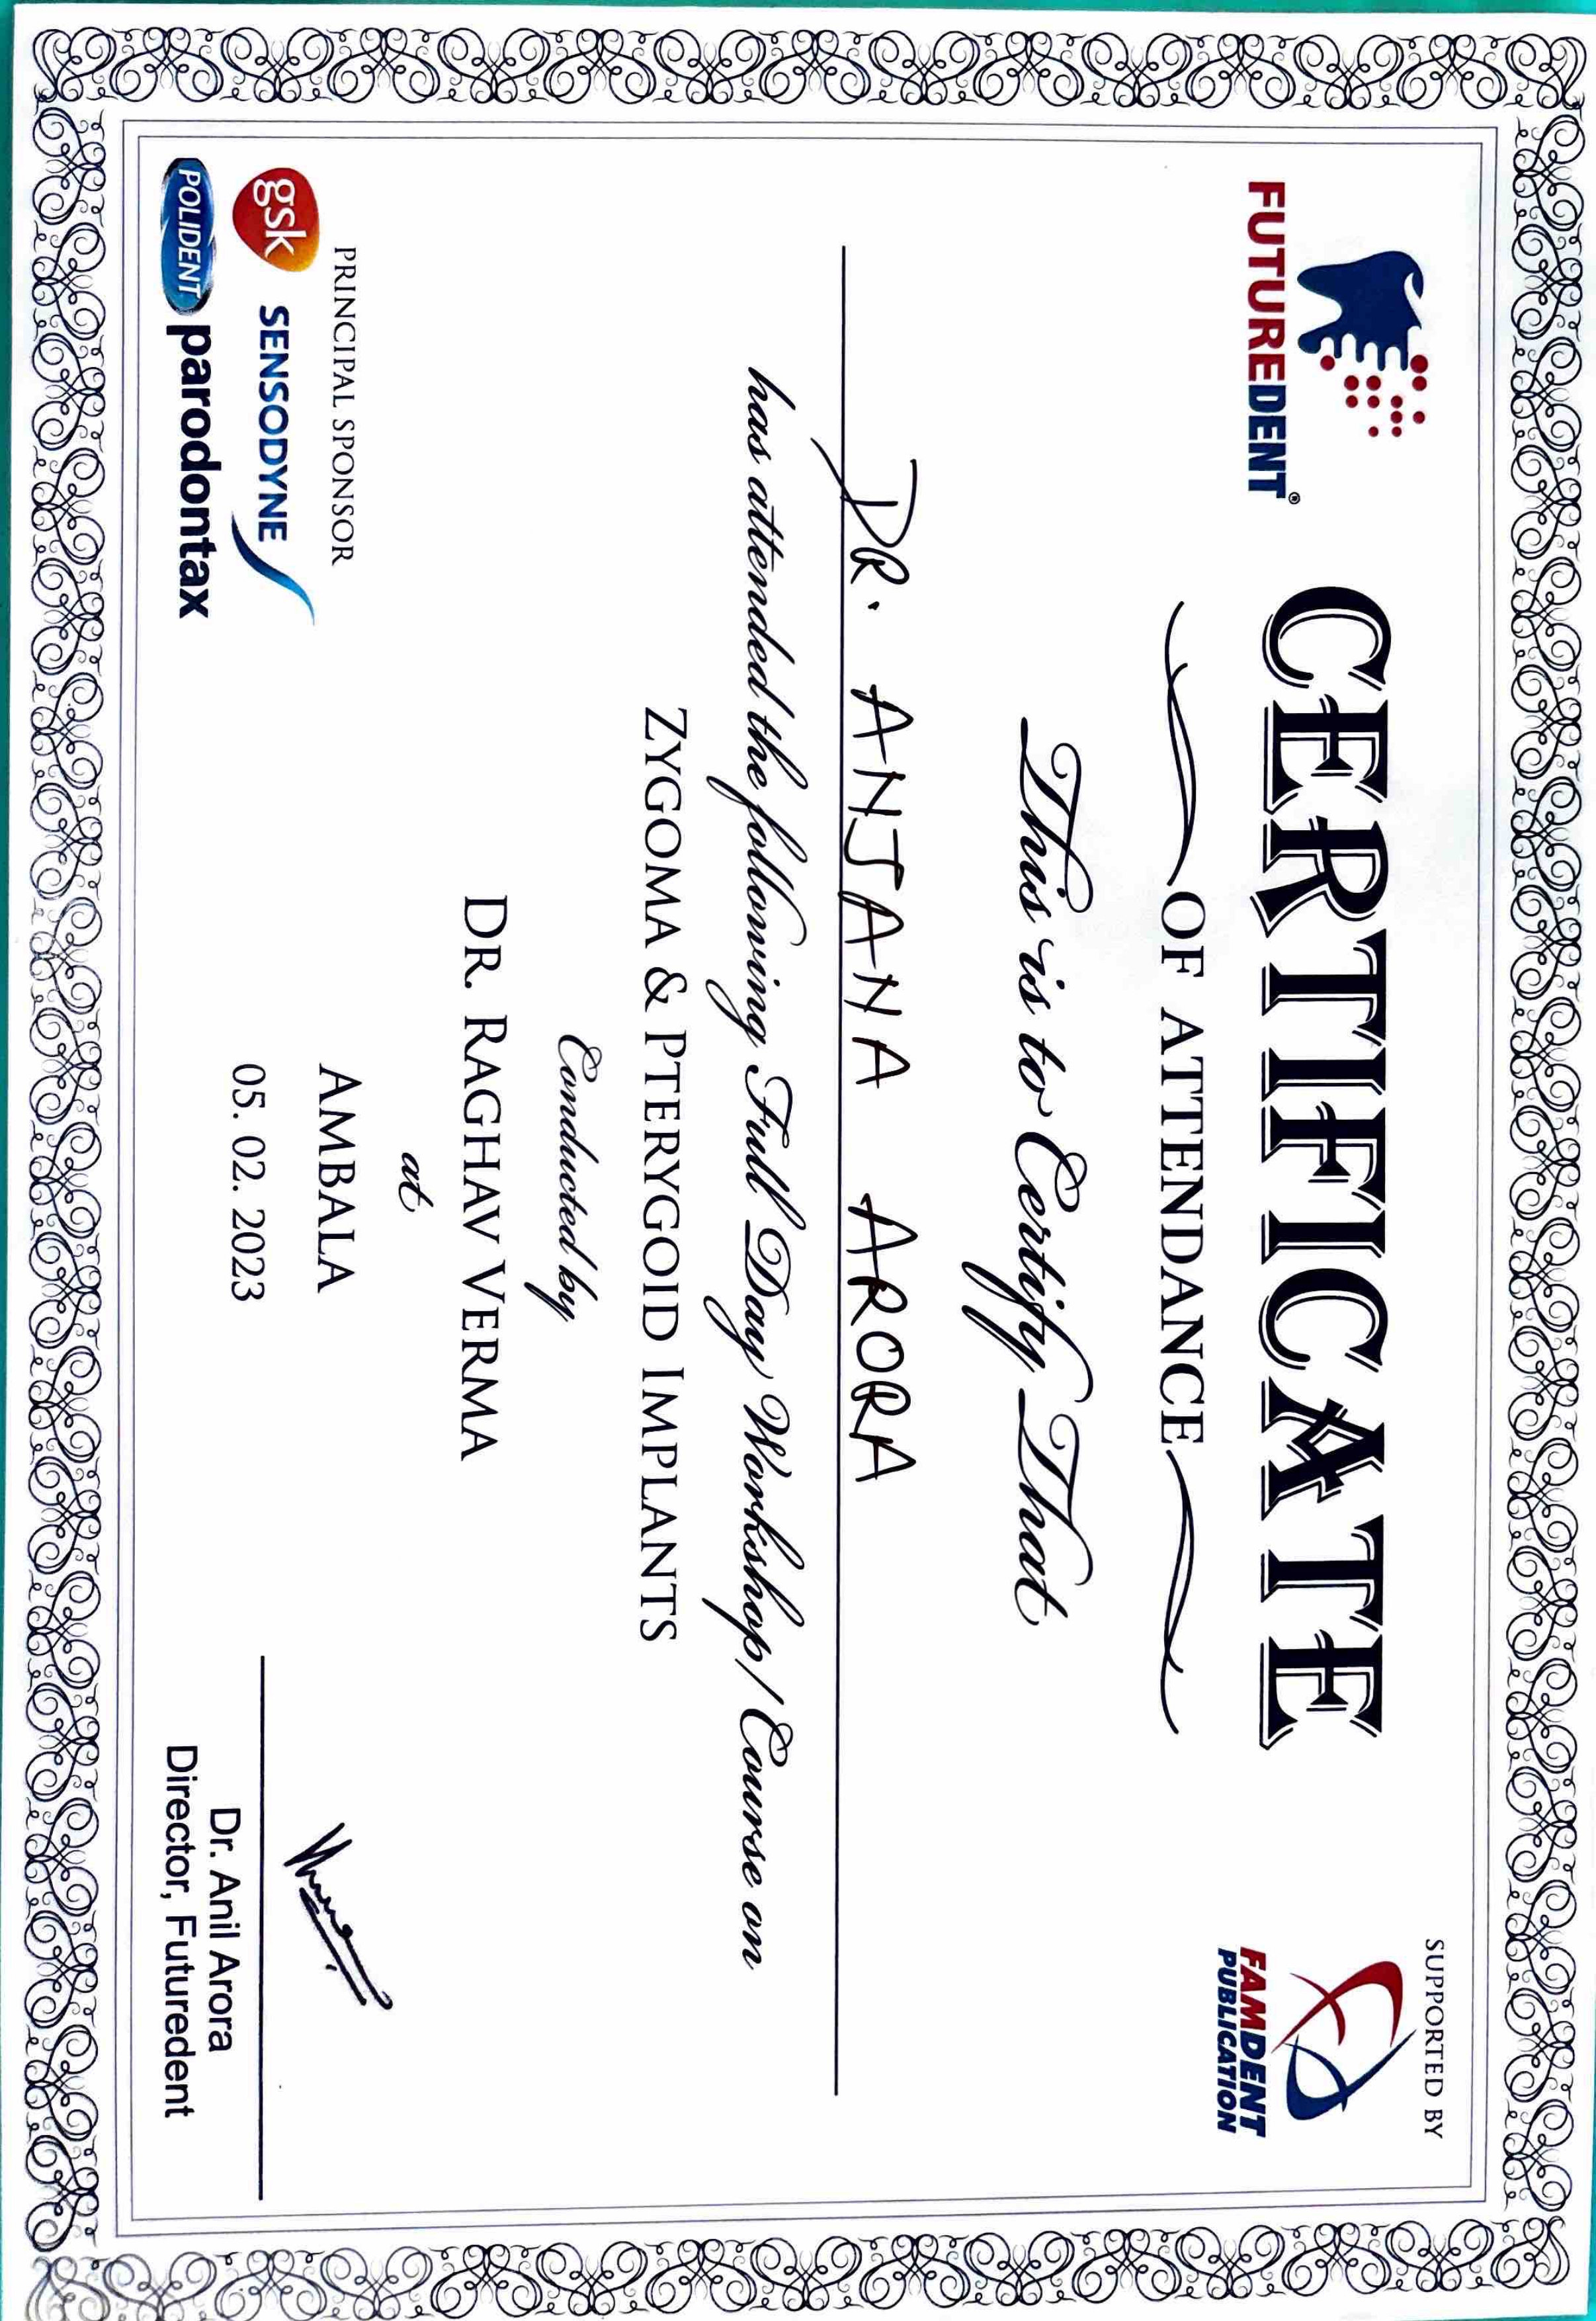 SUPPORTED BY
FUTUREDENT®
FAMDENT
PUBLICATION
CERTIFICATE
OF ATTENDANCE
This is to Certify That
DR. ANJANA ARORA
has attended the following Full Day Workshop/ Course on
ZYGOMA & PTERYGOID IMPLANTS
Conducted by
DR. RAGHAV VERMA
at
AMBALA
05. 02. 2023
PRINCIPAL SPONSOR
gsk SENSODYNE
POLIDENT parodontax
Dr. Anil Arora
Director, Futuredent